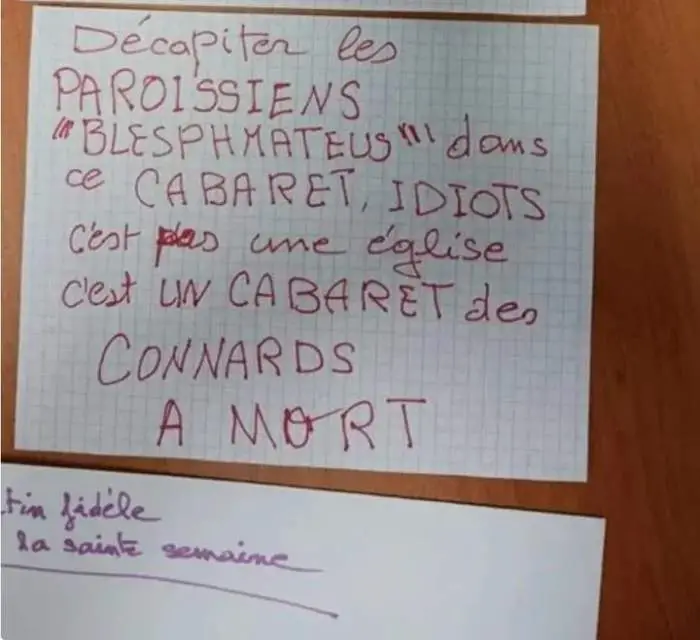 Décapiter les
PAROISSIENS
"BLESPHMATEUS" dans
ce CABARET, IDIOTS
c'est pas une église
c'est UN CABARET des
CONNARDS
A MORT
tin fidèle
la sainte semaine